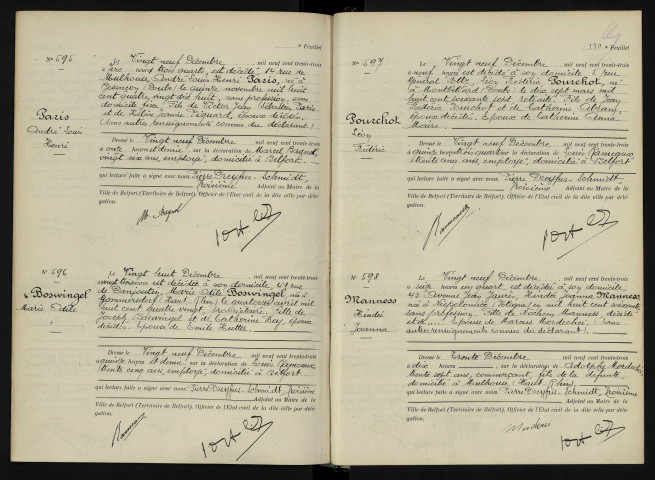 N° 595
Paris
André Louis
Henri
Le Vingt neuf Décembre mil neuf cent trente-trois
heures trois quarts, est décédé, 14 rue de
Mulhouse, André Louis Henri Paris, né à
Besançon (Doubs) le quinze novembre mil huit
cent quatre vingt dix huit, sans profession, sans
domicile fixe, Fils de Victor Jean Sébastien Paris
et de Hélène Jeanne Piguard, époux décédés.
(Sans autres renseignements connus du déclarant)
Dressé le Vingt neuf Décembre mil neuf cent trente-trois
à onze heures et demie, sur la déclaration de Marcel
vingt six ans, employé, domicilié à Belfort,
qui lecture faite a signé avec nous, Pierre Dreyfus-Schmidt,
troisième Adjoint au Maire de la
Ville de Belfort (Territoire de Belfort), Officier de l'Etat civil de la dite ville par délé-
gation.
N° 596
Boswingel
Marie Odile
Le Vingt huit Décembre mil neuf cent trente-trois
est décédée à son domicile, 41 rue
de Danjoutin, Marie Odile Boswingel, née à
Hommersdorf (Haut-Rhin) le quatorze avril mil
huit cent quatre vingt, propriétaire, Fille de
Joseph Boswingel et de Catherine Rey, époux
décédés. Epouse de Emile Hutter
Dressé le Vingt neuf Décembre mil neuf cent trente-trois
à quinze heures et demie, sur la déclaration de Louis
trente cinq ans, employé, domicilié à Belfort
qui lecture faite a signé avec nous, Pierre Dreyfus-Schmidt, troisième
Adjoint au Maire de la
Ville de Belfort (Territoire de Belfort), Officier de l'Etat civil de la dite ville par délé-
gation.
190 e Feuillet
N° 597
Pourchot
Léon
Frédéric
Le Vingt neuf Décembre mil neuf cent trente-trois
à neuf heures est décédé à son domicile, 5 rue
Général Foltz, Léon Frédéric Pourchot, né
à Montbéliard (Doubs) le dix sept mars mil
huit cent soixante sept, retraité. Fils de Jean
Frédéric Pourchot et de Catherine
époux décédés. Epoux de Catherine
Dressé le Vingt neuf Décembre mil neuf cent trente-trois
à quinze heures trois quarts, sur la déclaration de Louis
trente cinq ans, employé, domicilié à Belfort
qui lecture faite a signé avec nous, Pierre Dreyfus-Schmidt,
troisième Adjoint au Maire de la
Ville de Belfort (Territoire de Belfort), Officier de l'Etat civil de la dite ville par délé-
gation.
N° 598
Manness
Hindé
Joanna
Le Vingt neuf Décembre mil neuf cent trente-trois
à seize heures un quart, est décédée à son domicile,
43 Avenue Jean Jaurès, Hindé Joanna Manness
née à Niepolomice (Pologne) en mil huit cent soixante
sans profession. Fille de Nochem Manness, décédé
et de .... Epouse de Marcus Mordechei (Sans
autres renseignements connus du déclarant).
Dressé le Trente Décembre mil neuf cent trente-trois
à dix heures sur la déclaration de Adolphe Mordechei
trente sept ans, commerçant, fils de la défunte,
domicilié à Mulhouse (Haut-Rhin)
qui lecture faite a signé avec nous, Pierre Dreyfus-Schmidt, troisième
Adjoint au Maire de la
Ville de Belfort (Territoire de Belfort), Officier de l'Etat civil de la dite ville par délé-
gation.